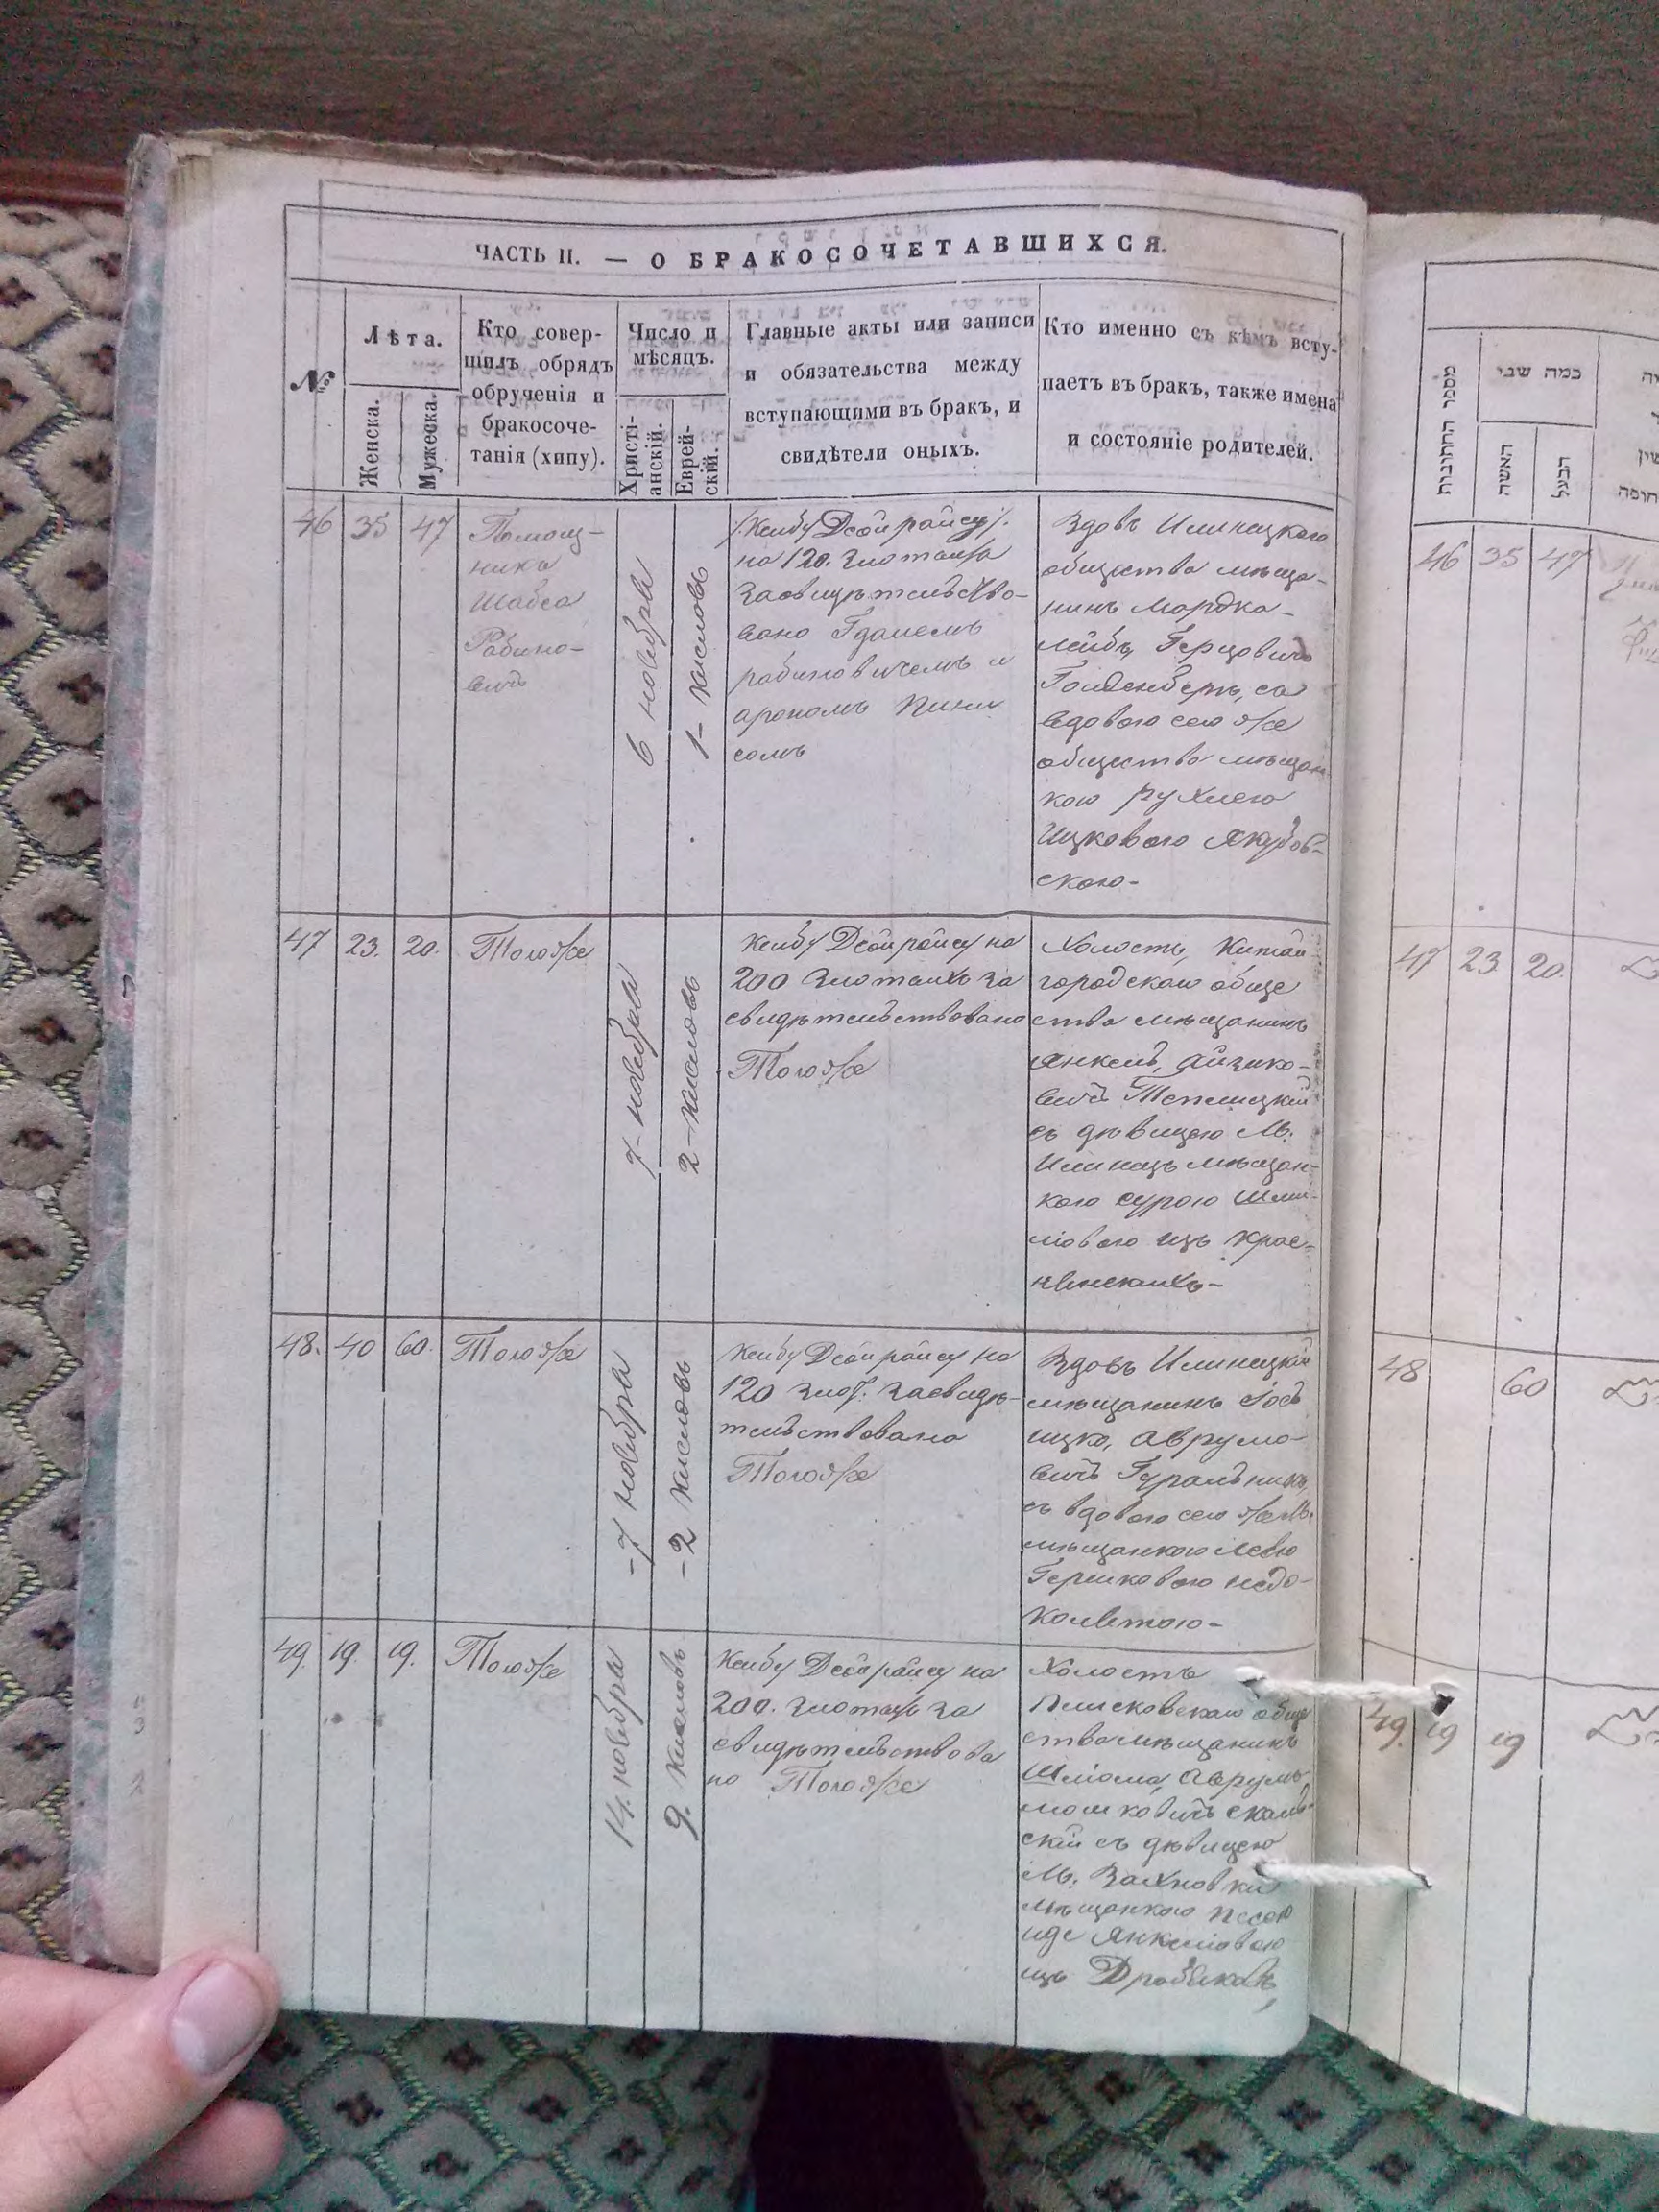 ЧАСТЬ II. — О БРАКОСОЧЕТАВШИХСЯ.
№
Лѣта.
Женска.
Мужеска.
Кто совер-
шилъ обрядъ
обрученія и
бракосоче-
танія (хипу).
Число и
мѣсяцъ.
Христі-
анскій.
Еврей-
скій.
Главные акты или записи
и обязательства между
вступающими въ бракъ, и
свидѣтели оныхъ.
Кто именно съ кѣмъ всту-
паетъ въ бракъ, также имена
и состояніе родителей.
46 35 47
Помощ-
ника
Шабса
Рабино-
вичъ
6 ноября
1 - кислова
на 120. злотыхъ
засвидѣтельство-
вано
рабиновичемъ и
арономъ Пинк
сомъ
Вдовъ Илинецкаго
общества мѣща-
нинъ Мордко-
лейбъ, Герцовичъ
Голденберъ, са
вдовою сего же
общества мѣщан
кою Рухлею
Ицковою Якубов-
скою -
47 23. 20. Тогоже
7 - ноября
2 - кислова
на
200 злотыхъ за
свидѣтельствовано
Тогоже
Холостъ, Китай
городскаго обще
ства мѣщанинъ
Янкель, Айзико-
вичъ Теплицкій
съ дѣвицею М.
Илинецъ мѣщан-
кою Сурою Шми-
ліовою изъ Крас-
нянскихъ -
48. 40 60. Тогоже
- 7 ноября
- 2 кислова
на
120 злот. засвидѣ-
тельствовано
Тогоже
Вдовъ Илинецкій
мѣщанинъ Іось
Ицко, Аврумо-
вичъ Гуральникъ,
съ вдовою сего же М.
мѣщанкою Леею
Гершковою недо-
колетою -
49. 19. 19. Тогоже
14. ноября
9. кислова
на
200. злотыхъ за
свидѣтельствова
но Тогоже
Холостъ
Плисковскаго обще
ства мѣщанинъ
Шліома, Аврумъ
Мошковичъ Скаль-
скій съ дѣвицею
М. Вахновки
мѣщанкою Песею
Иде Янкеліовою
изъ
מספר החתונות
כמה שני
האשה
הבעל
46 35 47
47 23. 20.
48 60
49. 19 19